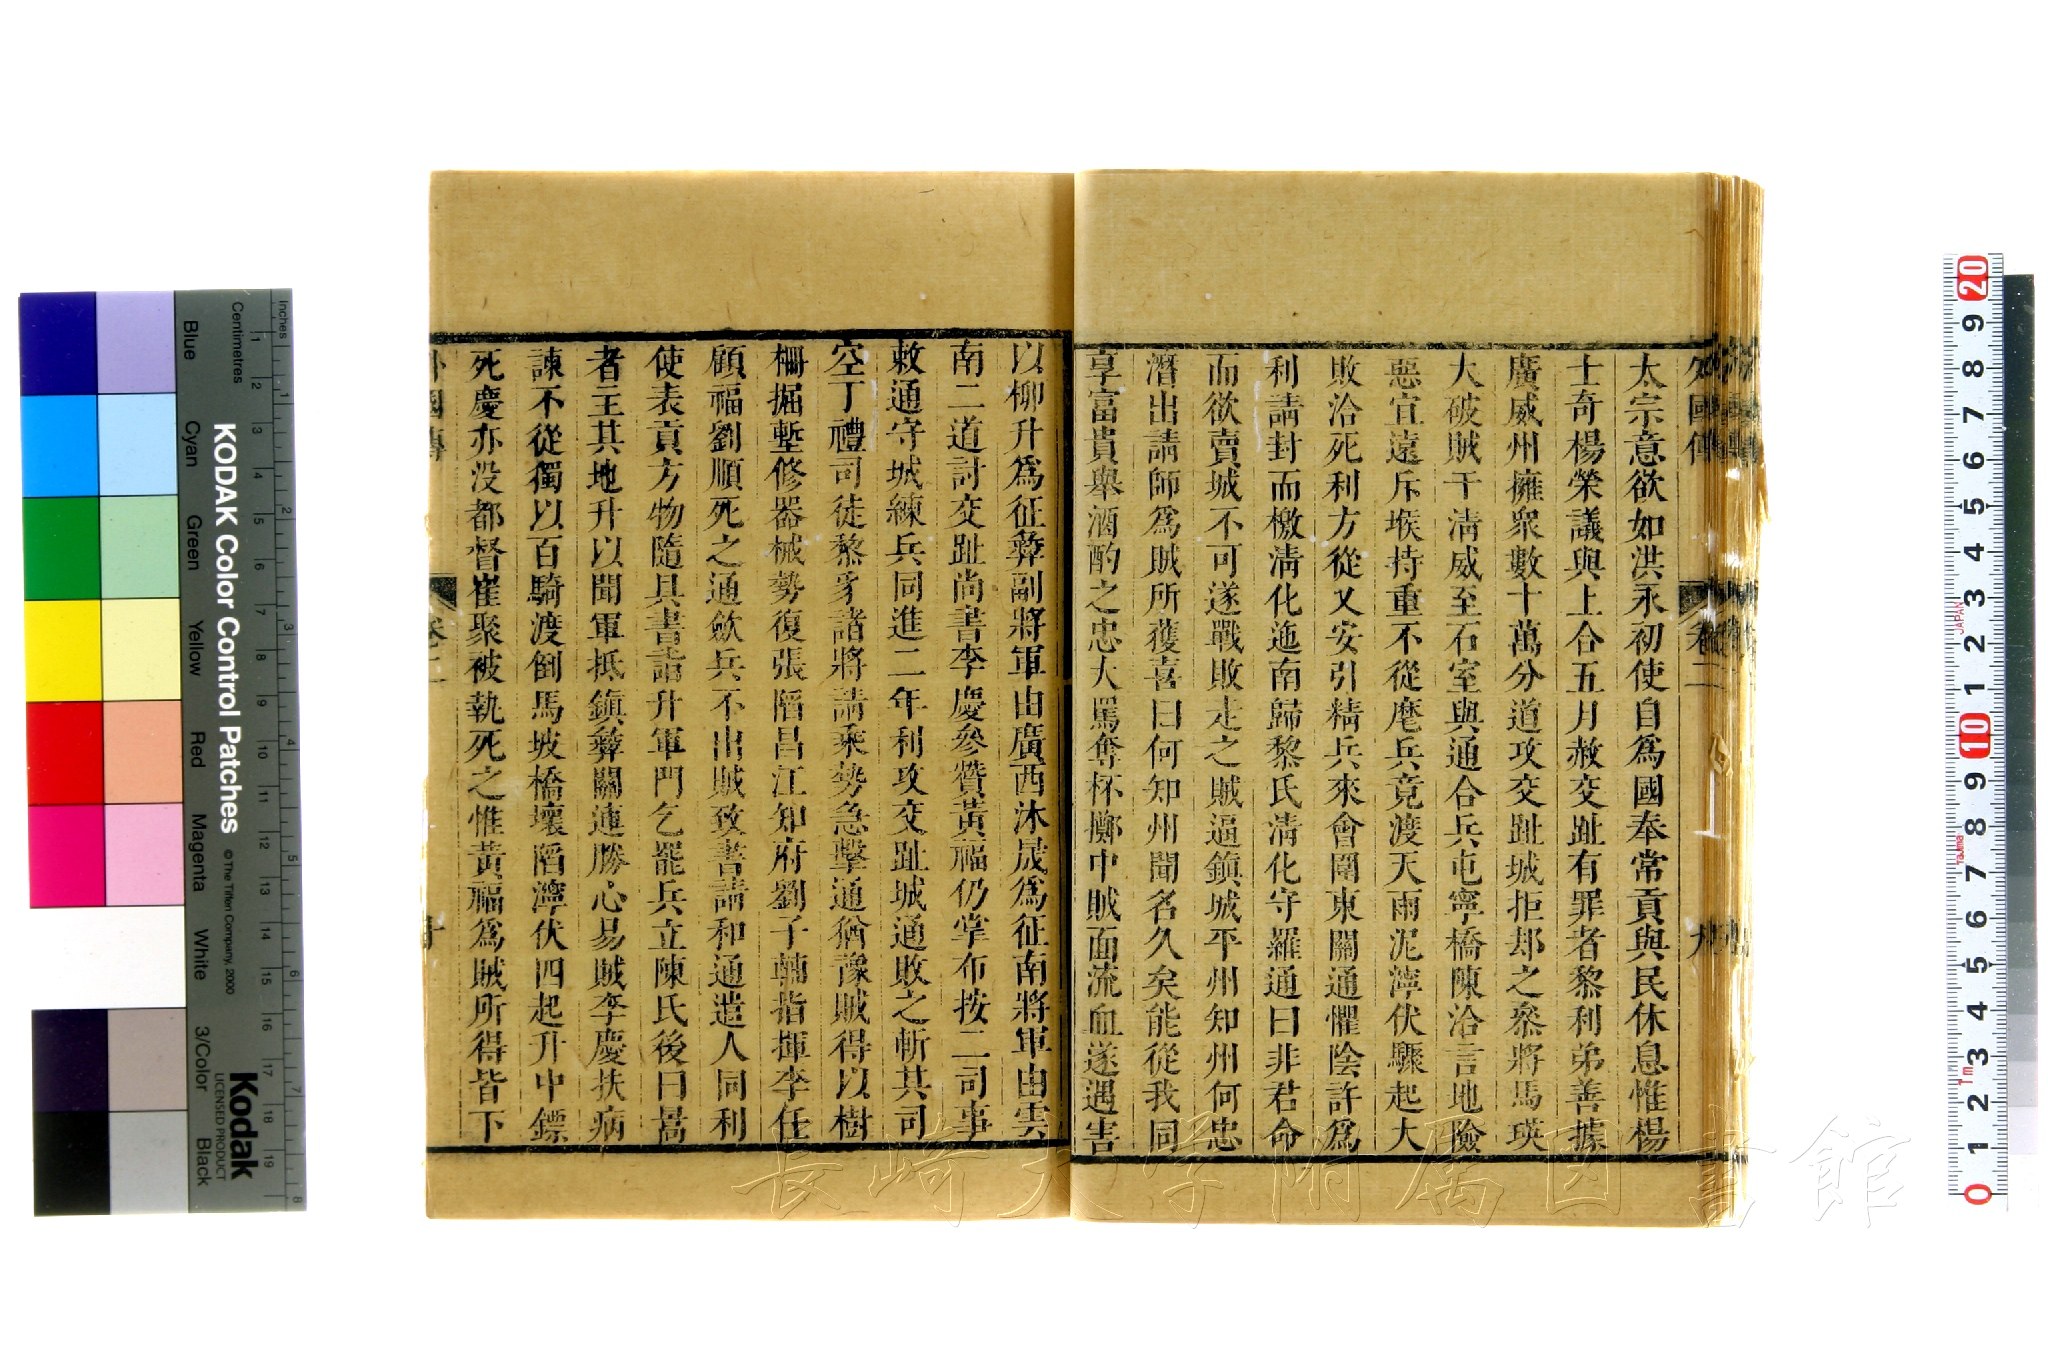 外國傳 卷二 九
太宗意欲如洪永初使自爲國奉常貢與民休息惟楊
士奇楊榮議與上合五月赦交趾有罪者黎利弟善據
廣威州擁衆數十萬分道攻交趾城拒却之叅將馬瑛
大破賊于淸威至石室與通合兵屯寧橋陳洽言地險
惡宜遠斥堠持重不從麾兵竟渡天雨泥濘伏驟起大
敗洽死利方從乂安引精兵來會圍東關通懼陰許爲
利請封而檄淸化迤南歸黎氏淸化守羅通曰非君命
而欲賣城不可遂戰敗走之賊逼鎮城平州知州何忠
潛出請師爲賊所獲喜曰何知州聞名久矣能從我同
享富貴舉酒酌之忠大罵奪杯擲中賊面流血遂遇害
以柳升爲征彝副將軍由廣西沐晟爲征南將軍由雲
南二道討交趾尚書李慶參贊黃福仍掌布按二司事
敕通守城練兵同進二年利攻交趾城通敗之斬其司
空丁禮司徒黎豸諸將請乘勢急擊通猶豫賊得以樹
柵掘塹修器械勢復張陷昌江知府劉子輔指揮李任
顧福劉順死之通歛兵不出賊致書請和通遣人同利
使表貢方物隨具書詣升軍門乞罷兵立陳氏後曰暠
者王其地升以聞軍抵鎮彝關連勝心易賊李慶扶病
諫不從獨以百騎渡倒馬坡橋壞陷濘伏四起升中鏢
死慶亦没都督崔聚被執死之惟黃福爲賊所得皆下
外國傳 卷二 十
長崎大学附属図書館
KODAK Color Control Patches © The Tiffen Company, 2000
Kodak LICENSED PRODUCT
Inches 1 2 3 4 5 6 7 8
Centimetres 1 2 3 4 5 6 7 8 9 10 11 12 13 14 15 16 17 18 19
Blue Cyan Green Yellow Red Magenta White 3/Color Black
20 9 8 7 6 5 4 3 2 1 10 9 8 7 6 5 4 3 2 1 0
JAPAN
Tajima
1m